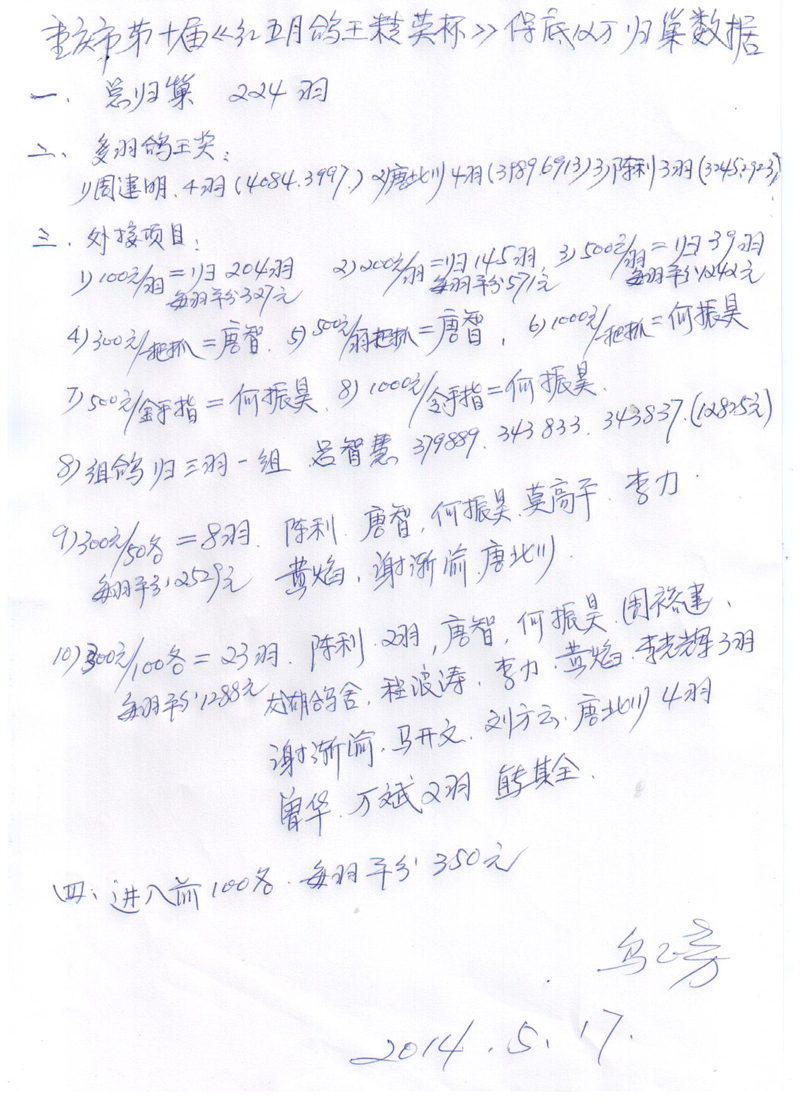 重庆市第十届《红五月鸽王精英杯》保底12万归巢数据
一、总归巢 224羽
二、多羽鸽王奖:
1)周建明.4羽(4084.3997.) 2)唐北川4羽(3989.6913) 3)陈利3羽(3245.2923)
三.外接项目:
1)100元/羽=归204羽 2)200元/羽=归145羽 3)500元/羽=归39羽
每羽平分327元 每羽平分571元 每羽平分1242元
4)300元/一把抓=唐智. 5)500元/羽把抓=唐智, 6)1000元/一把抓=何振昊
7)500元/金手指=何振昊. 8)1000元/金手指=何振昊.
8)组鸽归三羽一组 吕智慧 379889.343833.343837.(12825元)
9)300元/50名=8羽. 陈利.唐智,何振昊.莫高平.李力.
每羽平分2529元 黄焰.谢渐渝.唐北川.
10)300元/100名=23羽.陈利.2羽,唐智,何振昊.周裕建、
每羽平分1288元 龙湖鸽舍.程浪涛.李力.黄焰.李光辉3羽
谢渐渝.马开文.刘方云.唐北川4羽
曾华.万斌2羽 熊其全.
四、进入前100名.每羽平分350元
2014.5.17.